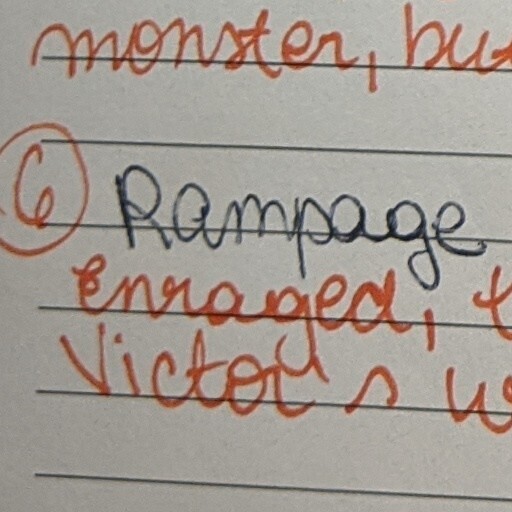 monster, but
6 Rampage
enraged, t
Victor's w